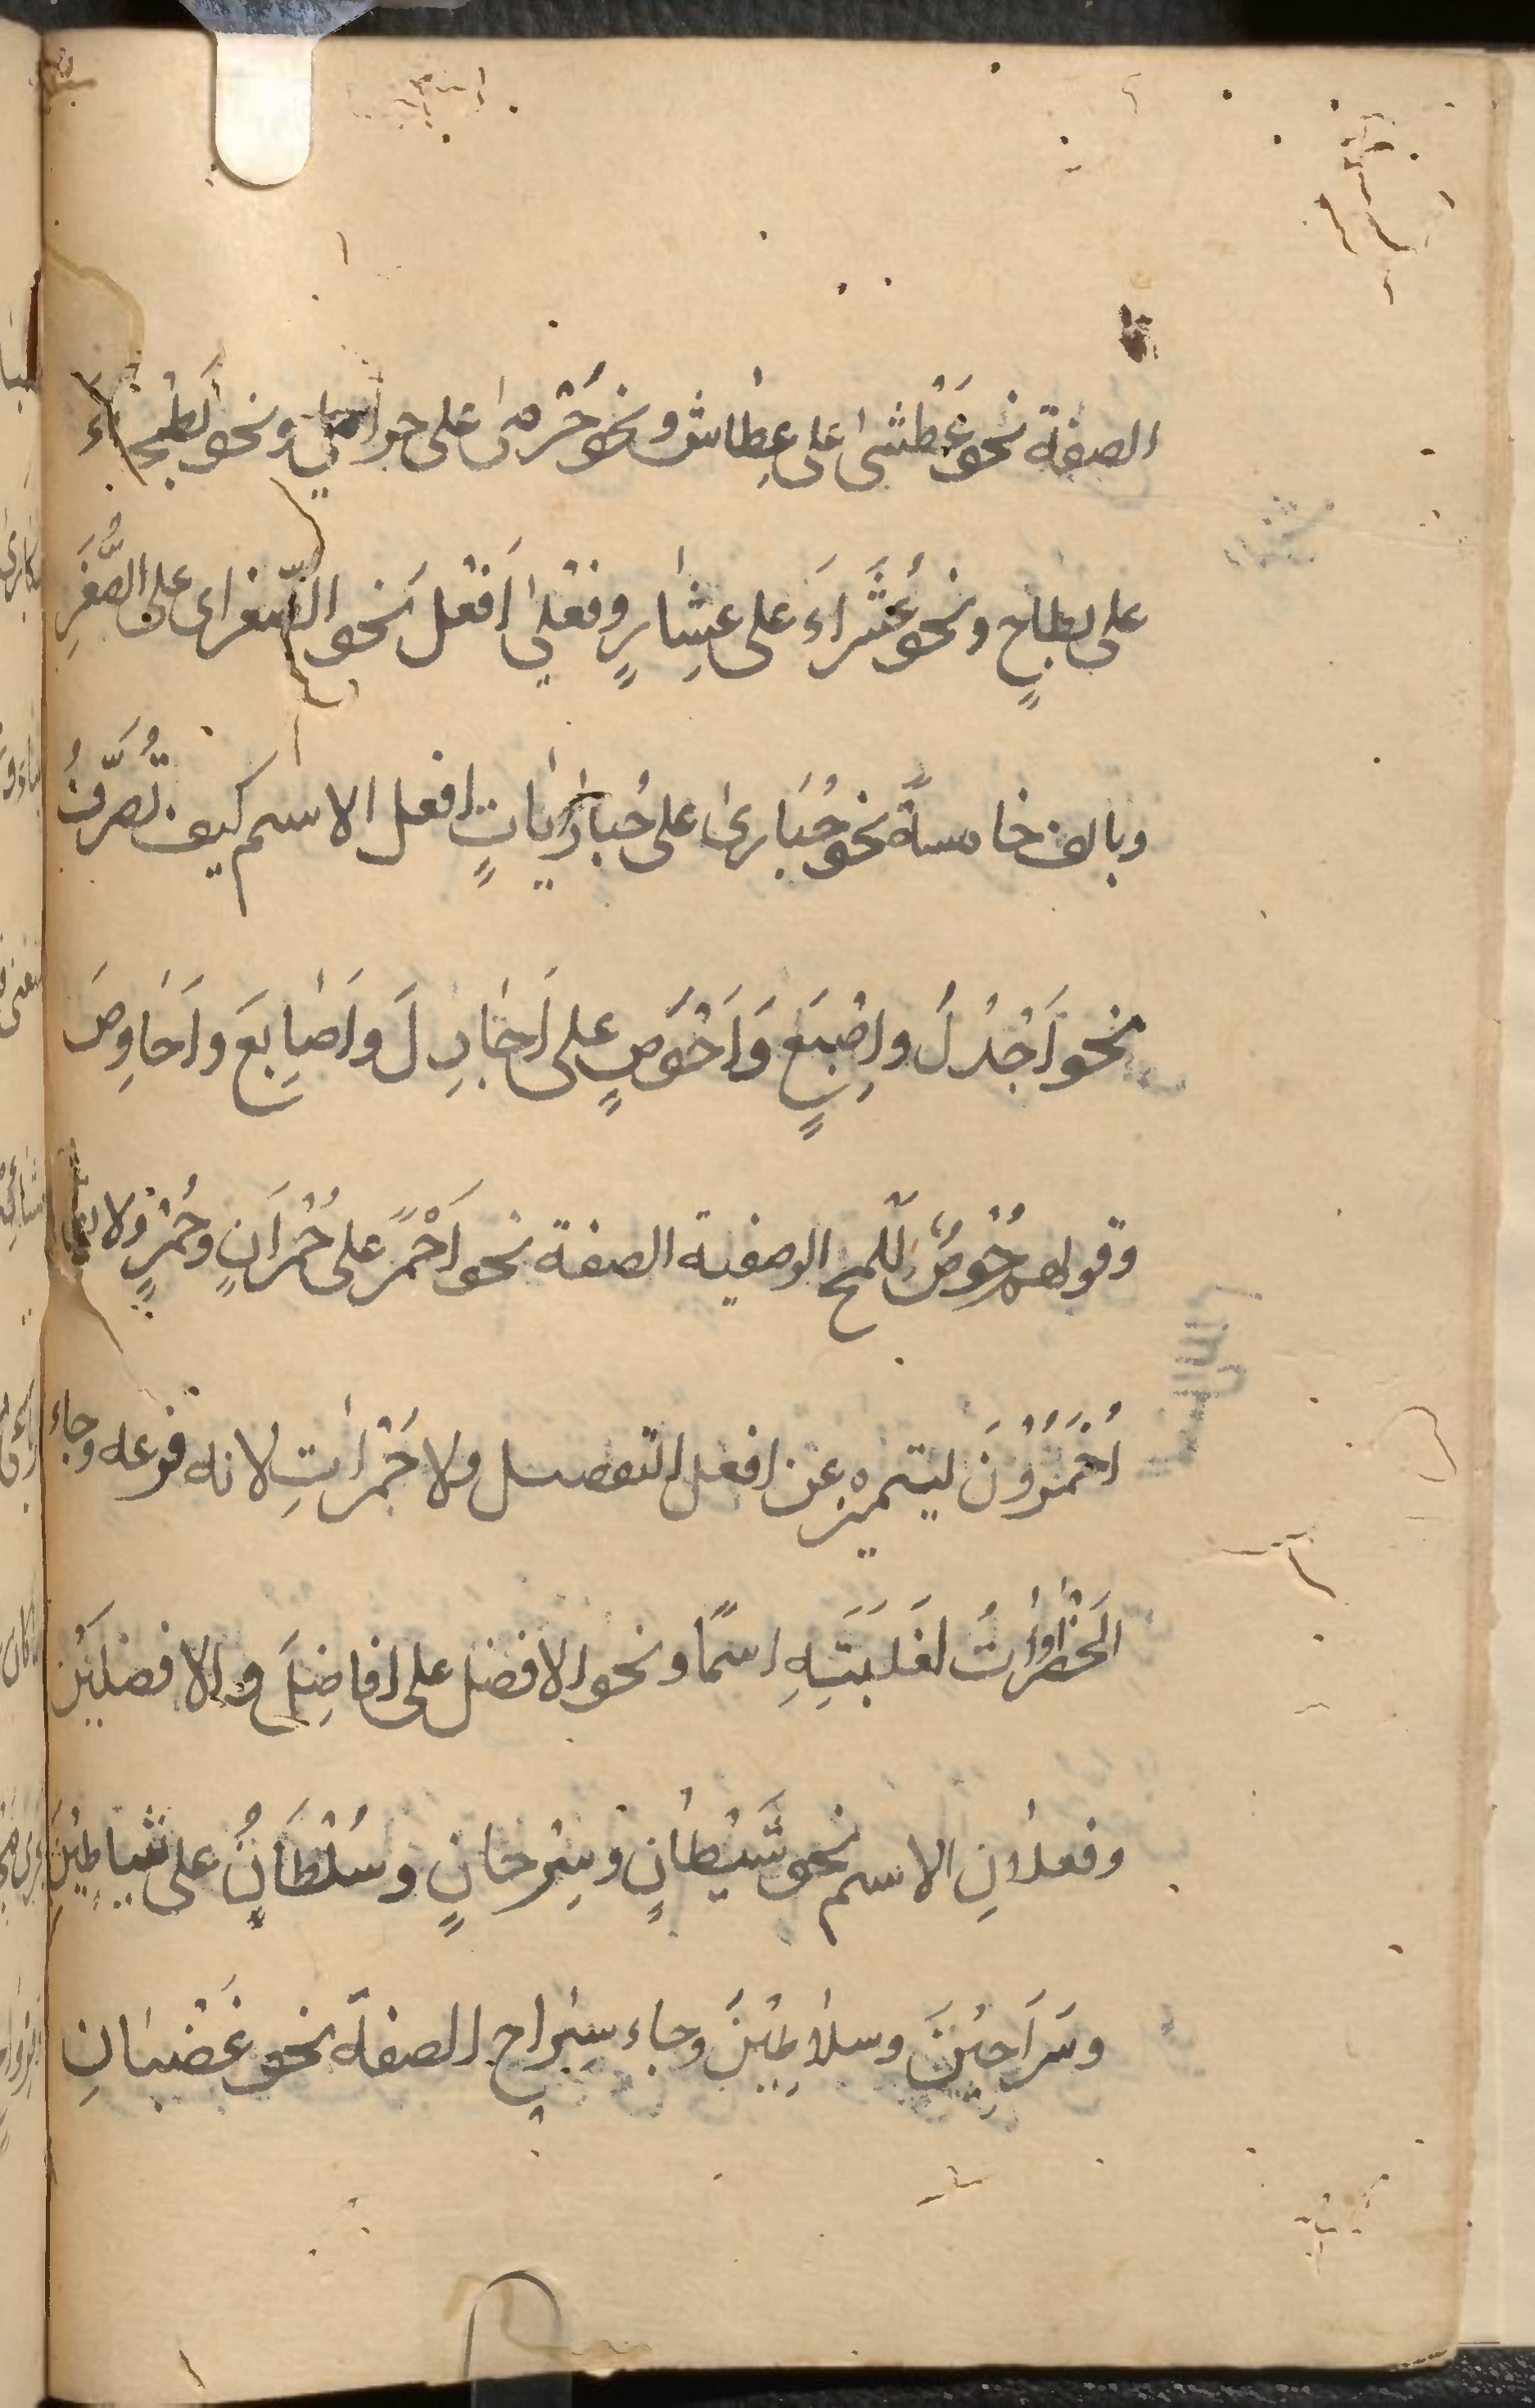 الصفة نحو عَطْشىٰ على عِطاش ونحو حَرْمىٰ على حرامي ونحو بَطْحَاءَ
على بطاحٍ ونحو عُشَرَاءَ على عِشارٍ وفُعْلىٰ اَفْعَلَ نحو الصُّغرى على الصُّغَرِ
وبالف خامسةً نحو حُبَارىٰ على حُبارَيَاتٍ افعل الاسم كيف تُصَرَّفُ
نحو اَجْدَلَ واِصْبَعٍ وَاَحْوَصٍ على اَجَادِلَ واَصَابِعَ واَحَاوِصَ
وقولهم حُوْصٌ لِلَّمح الوصفية الصفة نحو اَحْمَرَ على حُمْرَانٍ وحُمْرٍ ولا
اَحْمَرُوْنَ ليتميزه عن افعل التفصيل ولا حَمْرَاتِ لانه فرعه وجاء
الخَضْرَاوَاتُ لغَلَبَتِهِ اسمًا ونحو الافضل على افاضِلَ والافضلِيْنَ
وفعلانِ الاسم نحو شَيْطانٍ وسِرْحانٍ وسُلْطَانٍ على شياطِيْنَ
وسَرَاحِيْنَ وسلاطِيْنَ وجاء سِراح الصفة نحو غَضْبَانِ